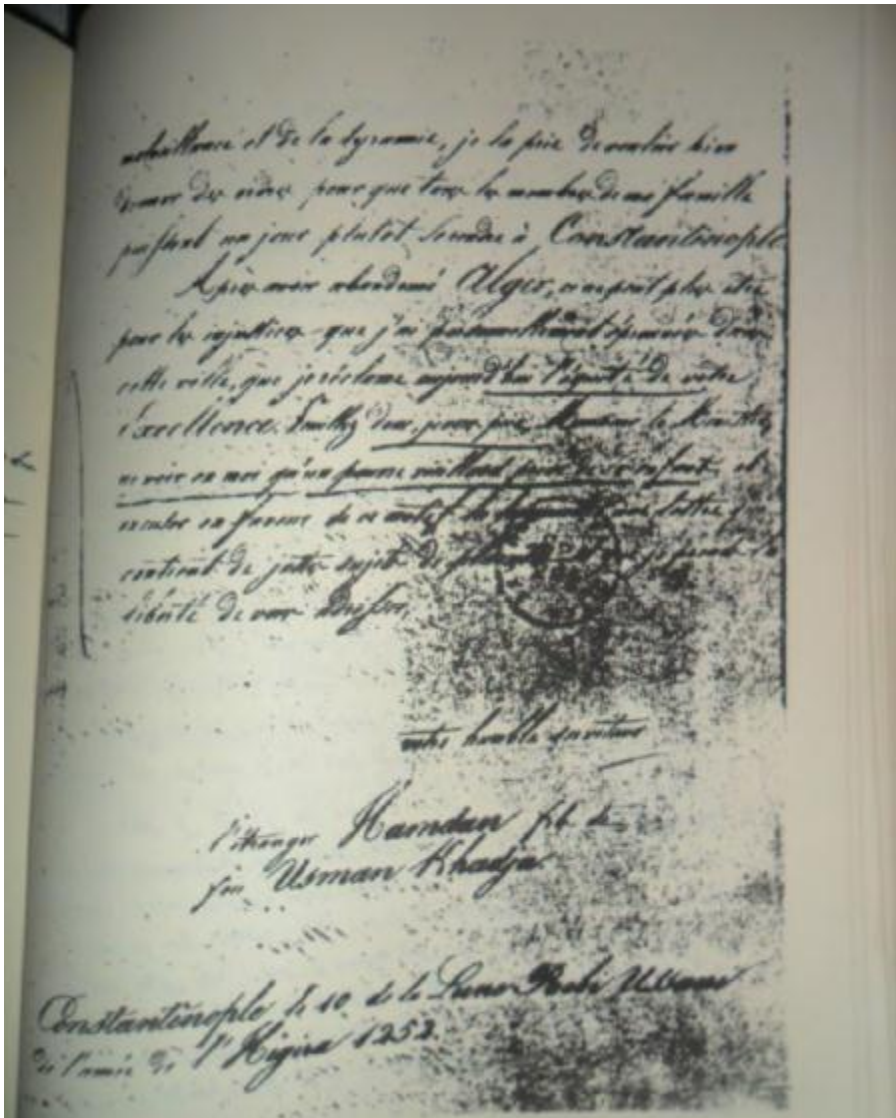 malveillance et de la tyrannie, je la prie de vouloir bien
donner des ordres pour que tous les membres de ma famille
puissent un jour plutôt se rendre à Constantinople
Après avoir abandonné Alger, ce ne peut plus être
pour les injustices que j'ai personnellement éprouvées dans
cette ville, que je réclame aujourd'hui l'équité de votre
Excellence. Veuillez donc, je vous prie Monsieur le Ministre
ne voir en moi qu'un pauvre vieillard père de ses enfants, et
excuser en faveur de ce motif la lettre
contient de justes sujets de je prends la
liberté de vous adresser.
votre humble serviteur
l'étranger Hamdan fils de
feu Usman Khadja
Constantinople le 10 de la Lune Rebi
de l'année de l'Higira 1252